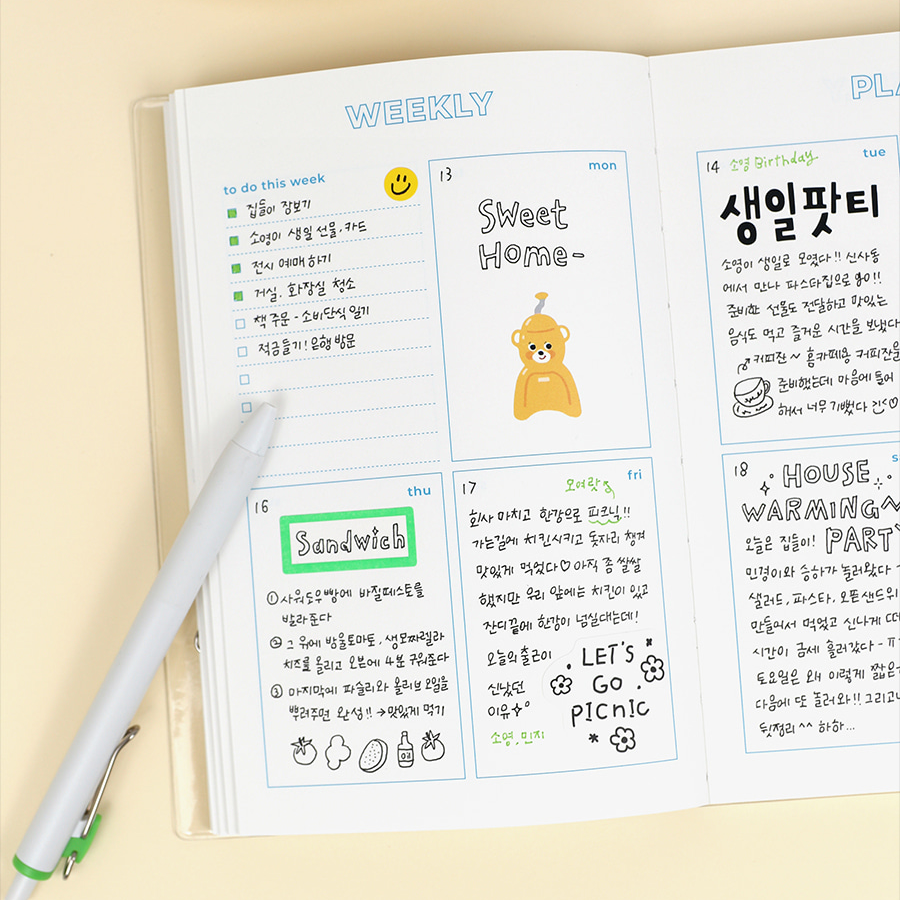 WEEKLY
to do this week
집들이 장보기
소영이 생일 선물, 카드
전시 예매하기
거실, 화장실 청소
책 주문 - 소비단식 일기
적금들기! 은행 방문
13
mon
Sweet
Home-
thu
16
Sandwich
① 사워도우 빵에 바질페스토를
발라준다
② 그 위에 방울토마토, 생모짜렐라
치즈를 올리고 오븐에 4분 구워준다
③ 마지막에 파슬리와 올리브 오일을
뿌려주면 완성!! → 맛있게 먹기
oil
fri
17
모여랏
회사 마치고 한강으로 피크닉!!
가는길에 치킨시키고 돗자리 챙겨
맛있게 먹었다♡ 아직 좀 쌀쌀
했지만 우리 앞에는 치킨이 있고
잔디 끝에 한강이 넘실대는데!
오늘의 출근이
신났던
이유
소영, 민지
LET'S
GO
PICNIC
PLA
tue
14
소영 Birthday
생일팟티
소영이 생일로 모였다!! 신사동
에서 만나 파스타집으로 go!!
준비한 선물도 전달하고 맛있는
음식도 먹고 즐거운 시간을 보냈다
커피잔 ~ 홈카페용 커피잔을
준비했는데 마음에 들어
해서 너무 기뻤다
s
18
HOUSE
WARMING~
PARTY
오늘은 집들이!
민경이와 승하가 놀러왔다
샐러드, 파스타, 오픈샌드위
만들어서 먹었고 신나게 떠
시간이 금세 흘러갔다 -
토요일은 왜 이렇게 짧은
다음에 또 놀러와!! 그리고
뒷정리 ^^ 하하...